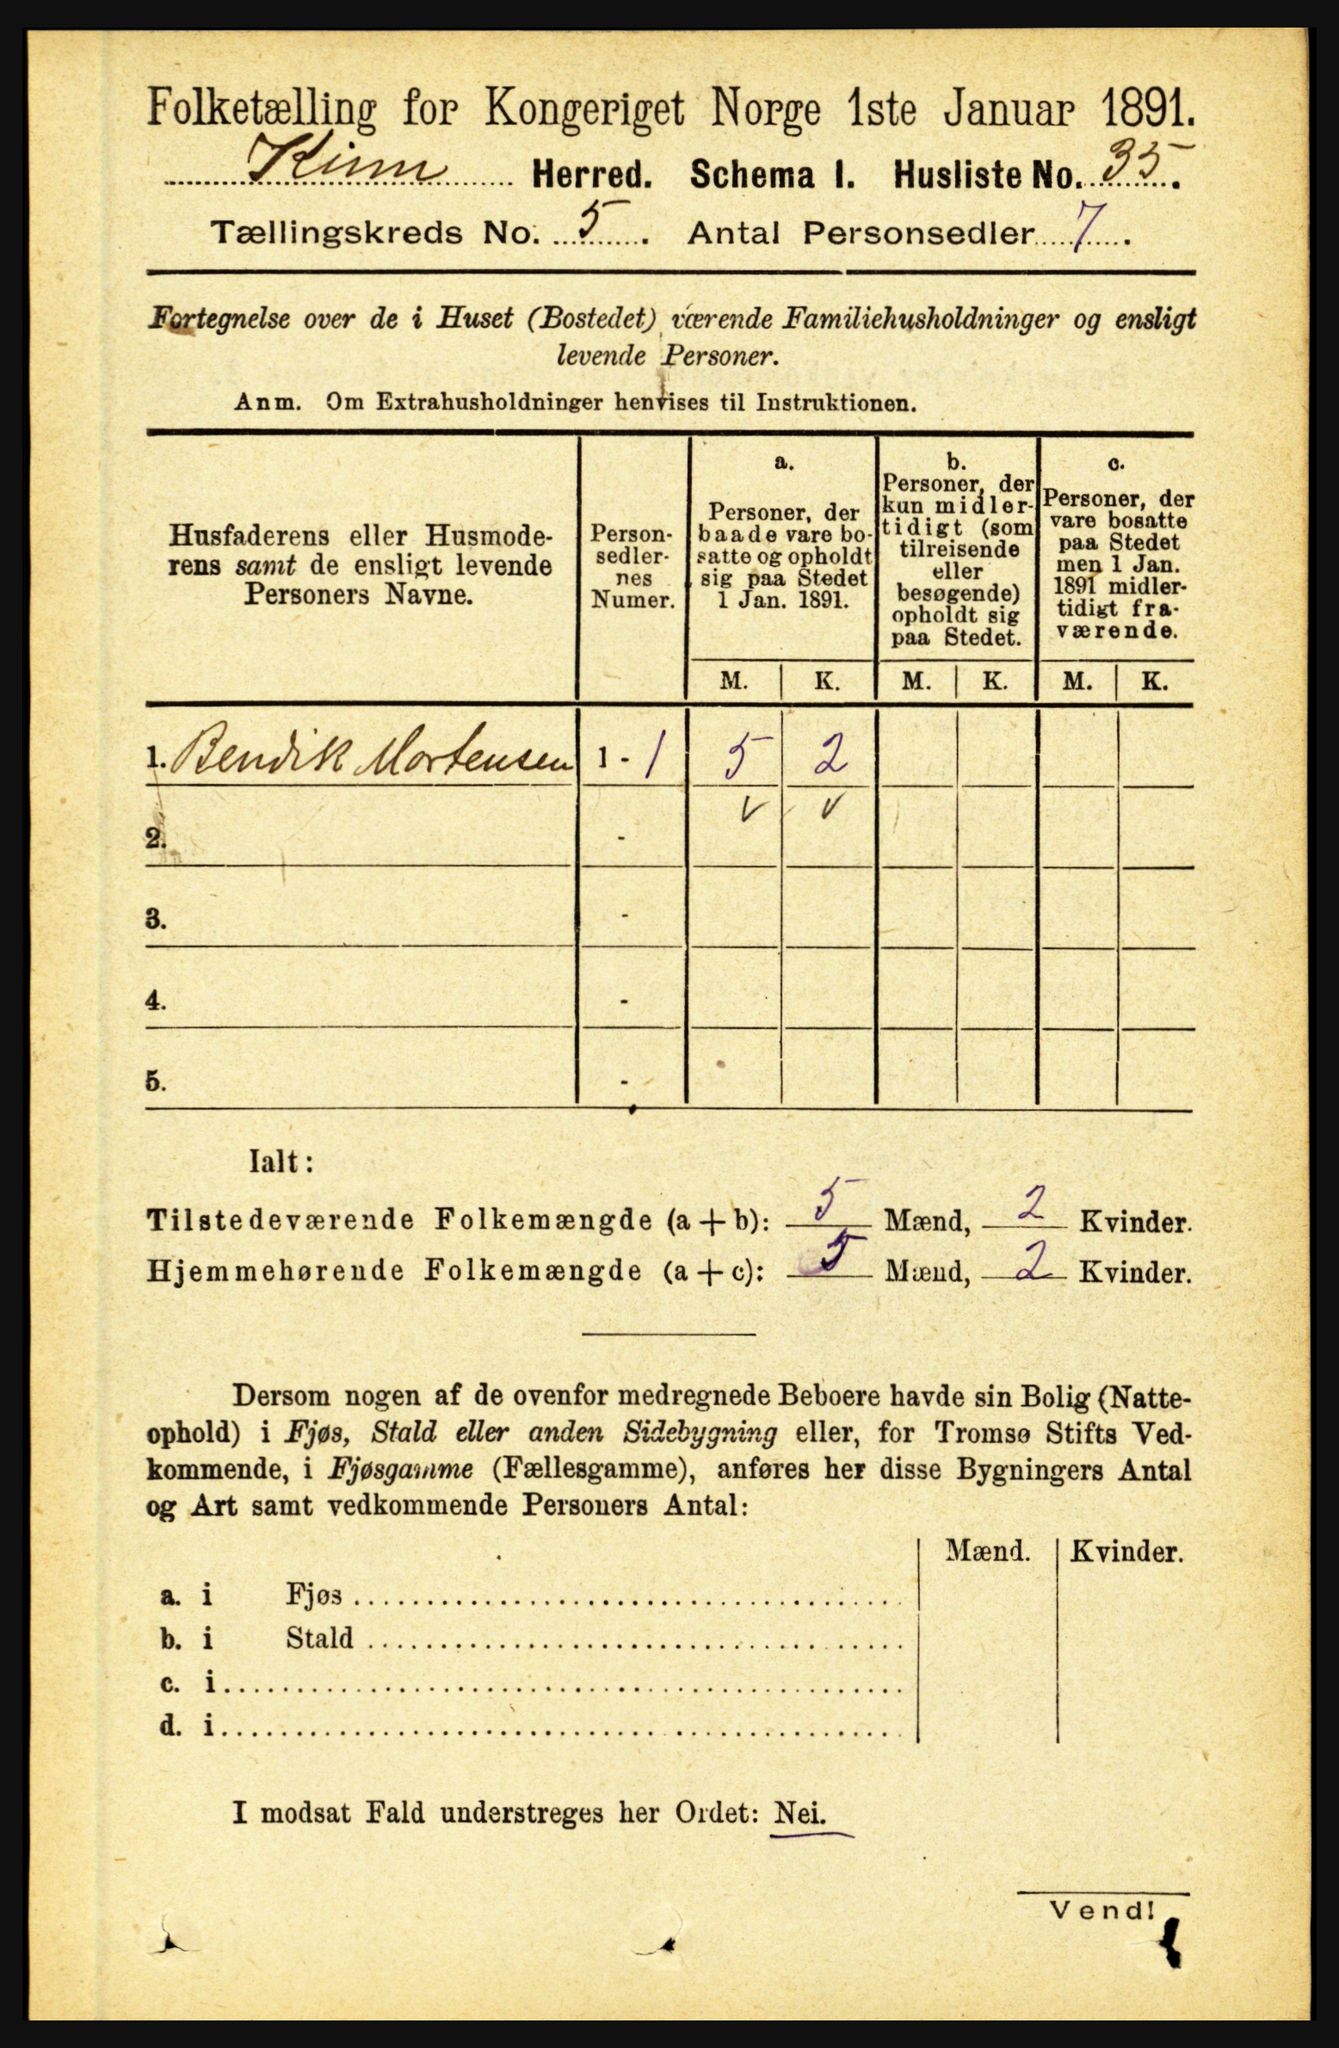 Folketælling for Kongeriget Norge 1ste Januar 1891.
Kinn Herred. Schema I. Husliste No. 35.
Tællingskreds No. 5. Antal Personsedler 7.
Fortegnelse over de i Huset (Bostedet) værende Familiehusholdninger og ensligt
levende Personer.
Anm. Om Extrahusholdninger henvises til Instruktionen.
Husfaderens eller Husmode-
rens samt de ensligt levende
Personers Navne.
Person-
sedler-
nes
Numer.
a.
Personer, der
baade vare bo-
satte og opholdt
sig paa Stedet
1 Jan. 1891.
b.
Personer, der
kun midler-
tidigt (som
tilreisende
eller
besøgende)
opholdt sig
paa Stedet.
c.
Personer, der
vare bosatte
paa Stedet
men 1 Jan.
1891 midler-
tidigt fra-
værende.
M. K. M. K. M. K.
1. Bendik Mortensen 1 - 1 5 2
v v
2. -
3. -
4. -
5. -
Ialt:
Tilstedeværende Folkemængde (a + b): 5 Mænd, 2 Kvinder.
Hjemmehørende Folkemængde (a + c): 5 Mænd, 2 Kvinder.
Dersom nogen af de ovenfor medregnede Beboere havde sin Bolig (Natte-
ophold) i Fjøs, Stald eller anden Sidebygning eller, for Tromsø Stifts Ved-
kommende, i Fjøsgamme (Fællesgamme), anføres her disse Bygningers Antal
og Art samt vedkommende Personers Antal:
Mænd. Kvinder.
a. i Fjøs
b. i Stald
c. i
d. i
I modsat Fald understreges her Ordet: Nei.
Vend!